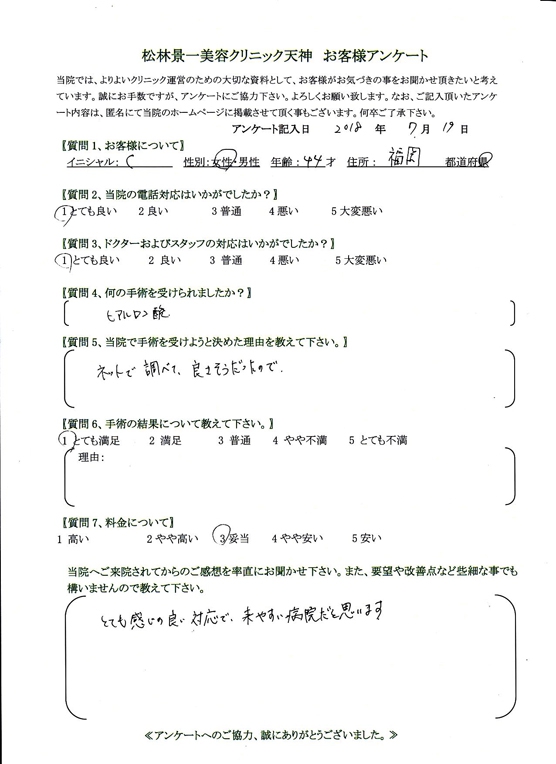 松林景一美容クリニック天神 お客様アンケート
当院では、よりよいクリニック運営のための大切な資料として、お客様がお気づきの事をお聞かせ頂きたいと考え
ています。誠にお手数ですが、アンケートにご協力下さい。よろしくお願い致します。なお、ご記入頂いたアンケ
ート内容は、匿名にて当院のホームページに掲載させて頂く事もございます。何卒ご了承下さい。
アンケート記入日 2018 年 7 月 19 日
【質問1、お客様について】
イニシャル: C 性別:女性・男性 年齢:44才 住所: 福岡 都道府県
【質問2、当院の電話対応はいかがでしたか?】
1とても良い 2良い 3普通 4悪い 5大変悪い
【質問3、ドクターおよびスタッフの対応はいかがでしたか?】
1とても良い 2 良い 3 普通 4悪い 5大変悪い
【質問4、何の手術を受けられましたか?】
ヒアルロン酸
【質問5、当院で手術を受けようと決めた理由を教えて下さい。】
ネットで調べて、良さそうだったので。
【質問6、手術の結果について教えて下さい。】
1 とても満足 2 満足 3 普通 4 やや不満 5 とても不満
理由:
【質問7、料金について】
1 高い 2やや高い 3妥当 4やや安い 5安い
当院へご来院されてからのご感想を率直にお聞かせ下さい。また、要望や改善点など些細な事でも
構いませんので教えて下さい。
とても感じの良い対応で、来やすい病院だと思います
≪アンケートへのご協力、誠にありがとうございました。≫